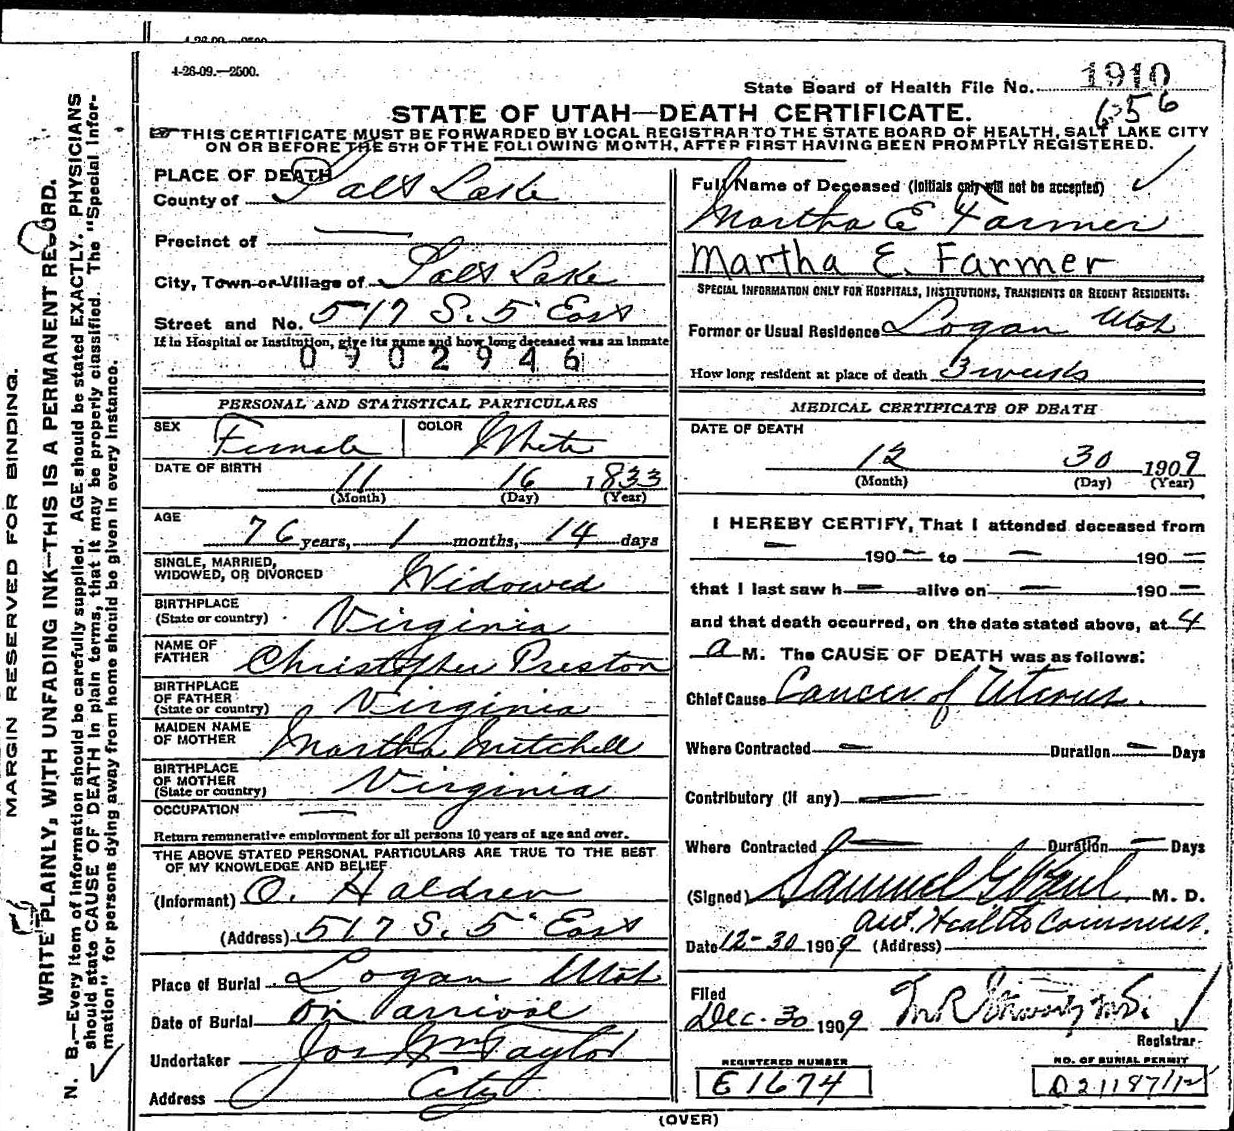 4-26-09.—2500.
4-26-09.—2500.
State Board of Health File No. 1910
656
STATE OF UTAH—DEATH CERTIFICATE.
☞THIS CERTIFICATE MUST BE FORWARDED BY LOCAL REGISTRAR TO THE STATE BOARD OF HEALTH, SALT LAKE CITY
ON OR BEFORE THE 5TH OF THE FOLLOWING MONTH, AFTER FIRST HAVING BEEN PROMPTLY REGISTERED.
PLACE OF DEATH
County of Salt Lake
Precinct of —
City, Town or Village of Salt Lake
Street and No. 517 S. 5 East
If in Hospital or Institution, give its name and how long deceased was an inmate
0902946
PERSONAL AND STATISTICAL PARTICULARS
SEX Female COLOR White
DATE OF BIRTH
11 16 1833
(Month) (Day) (Year)
AGE
76 years, 1 months, 14 days
SINGLE, MARRIED,
WIDOWED, OR DIVORCED Widowed
BIRTHPLACE
(State or country) Virginia
NAME OF
FATHER Christopher Preston
BIRTHPLACE
OF FATHER
(State or country) Virginia
MAIDEN NAME
OF MOTHER Martha Mitchell
BIRTHPLACE
OF MOTHER
(State or country) Virginia
OCCUPATION —
Return remunerative employment for all persons 10 years of age and over.
THE ABOVE STATED PERSONAL PARTICULARS ARE TRUE TO THE BEST
OF MY KNOWLEDGE AND BELIEF
(Informant) O. Haldren
(Address) 517 S. 5 East
Place of Burial Logan Utah
Date of Burial On arrival
Undertaker Jos Wm Taylor
Address City
Full Name of Deceased (Initials only will not be accepted)
Martha E Farmer
Martha E. Farmer
SPECIAL INFORMATION ONLY FOR HOSPITALS, INSTITUTIONS, TRANSIENTS OR RECENT RESIDENTS:
Former or Usual Residence Logan Utah
How long resident at place of death 3 weeks
MEDICAL CERTIFICATE OF DEATH
DATE OF DEATH
12 30 1909
(Month) (Day) (Year)
I HEREBY CERTIFY, That I attended deceased from
— 190 — to — 190 —
that I last saw h — alive on — 190 —
and that death occurred, on the date stated above, at 4
a M. The CAUSE OF DEATH was as follows:
Chief Cause Cancer of Uterus.
Where Contracted — Duration — Days
Contributory (if any) —
Where Contracted — Duration — Days
(Signed) Samuel G. Paul M. D.
Date 12-30 1909 (Address) Asst. Health Commiss.
Filed
Dec. 30 1909
Registrar
REGISTERED NUMBER
E1674
NO. OF BURIAL PERMIT
(OVER)
MARGIN RESERVED FOR BINDING.
WRITE PLAINLY, WITH UNFADING INK—THIS IS A PERMANENT RECORD.
N. B.—Every item of information should be carefully supplied. AGE should be stated EXACTLY. PHYSICIANS
should state CAUSE OF DEATH in plain terms, that it may be properly classified. The "Special Infor-
mation" for persons dying away from home should be given in every instance.